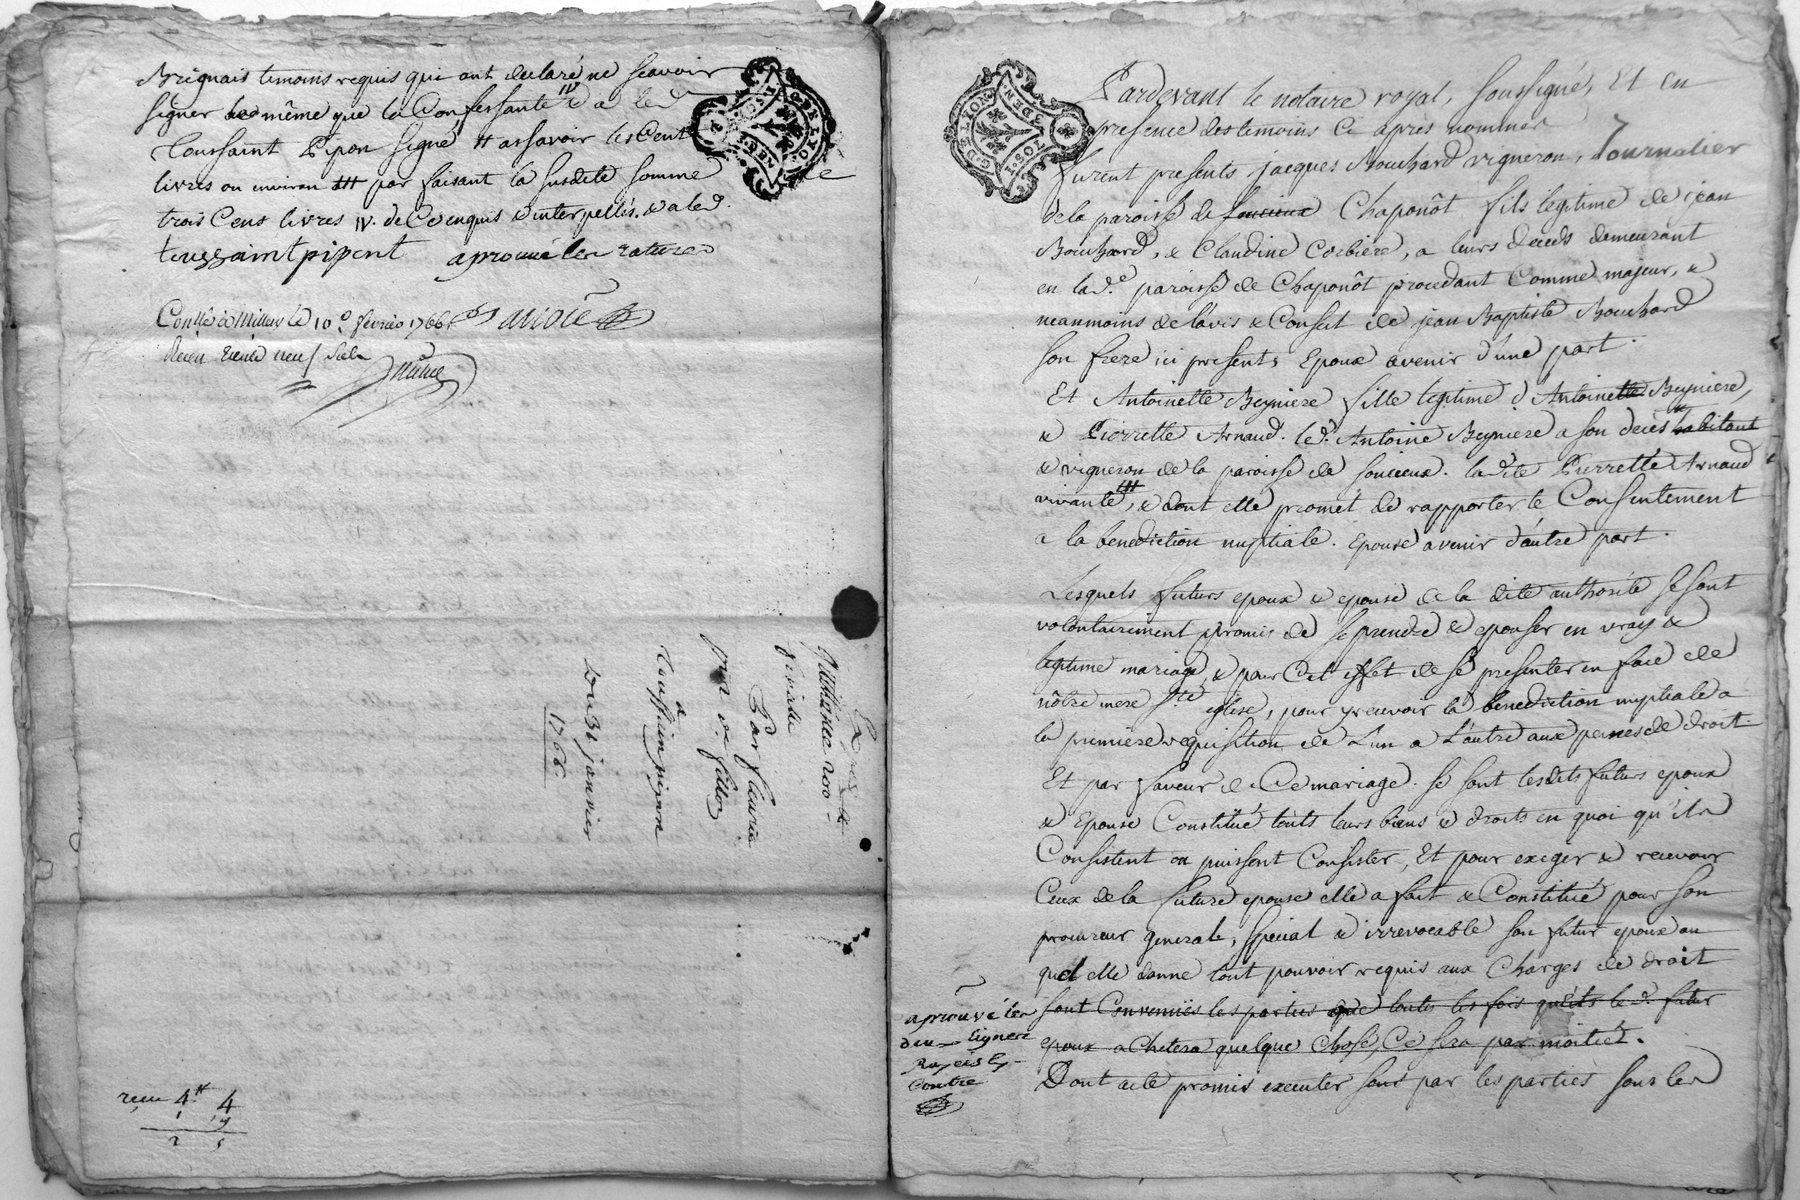 Brignais temoins requis qui ont declaré ne scavoir
signer de même que la Confessante IV & a led.
Toussaint Pipon signé # assavoir les Cent
livres ou environ par faisant la susdite somme
trois Cens livres IV. de Ce enquis & interpellés. & a led.
toussaint pipont aprouvé les ratures
Conllé à Millery le 10e. fevrier 1766
Reçu trente neuf sols
Expédié
Quittance
par
Par fleurie
a
toussaint pipon
Du 31 janvier
1766
reçu 4 4
1
2 5
Pardevant le notaire royal, soussigné, Et en
presence des temoins Cy après nommés
furent presents jacques Bouchard vigneron, Journalier
de la paroisse de soucieux Chaponôt fils legitime de jean
Bouchard, & Claudine Corbiere, a leurs deceds demeurant
en lad.e paroisse de Chaponôt procedant Comme majeur, &
neanmoins de l'avis & Conseil de jean Baptiste Bouchard
son frere ici present, Epoux avenir d'une part.
Et Antoinette Beyniere fille legitime d'Antoinette Beyniere,
& Pierrette Arnaud. led. Antoine Beyniere a son deces habitant
& vigneron de la paroisse de soucieux. ladite Pierrette Arnaud
vivante, & dont elle promet de rapporter le Consentement
a la benediction nuptiale. Epouse avenir d'autre part.
Lesquels futurs epoux & epouse de la dite authorité se sont
volontairement promis de se prendre & epouser en vray &
legitime mariage, & pour Cet effet de se presenter en face de
nôtre mere Ste église, pour y recevoir la benediction nuptiale a
la premiere requisition de L'un a L'autre aux peines de droit
Et par faveur de Ce mariage. se sont lesdits futurs epoux
& Epouse Constitué touts leurs biens & droits en quoi qu'ils
Consistent ou puissent Consister, Et pour exiger & recevoir
Ceux de la future epouse elle a fait & Constitué pour son
procureur generale, special & irrevocable son futur epoux au
quel elle donne tout pouvoir requis aux Charges de droit
sont Convenües les parties que toutes les fois qu'ils le d. futur
epoux achetera quelque chose, Ce sera par moitié.
Dont acte promis executer sous par les parties sous les
aprouvé les
deux Lignes
Rayées Cy
Contre